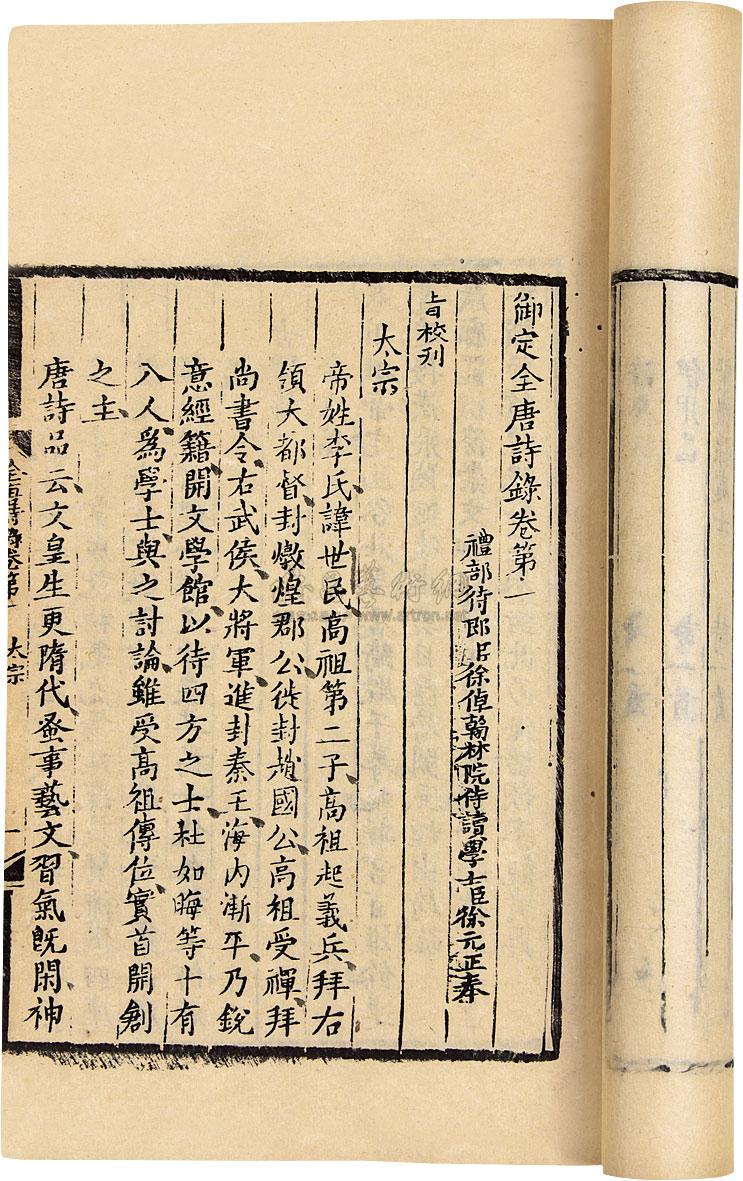 御定全唐詩錄卷第一
禮部侍郎臣徐倬翰林院侍讀學士臣徐元正奉
旨校刊
太宗
帝姓李氏諱世民高祖第二子高祖起義兵拜右
領大都督封燉煌郡公徙封趙國公高祖受禪拜
尚書令右武侯大將軍進封秦王海內漸平乃銳
意經籍開文學館以待四方之士杜如晦等十有
八人為學士與之討論雖受高祖傳位實首開創
之主
唐詩品云文皇生更隋代蚤事藝文習氣旣閑神
全唐詩錄卷第一 太宗 一